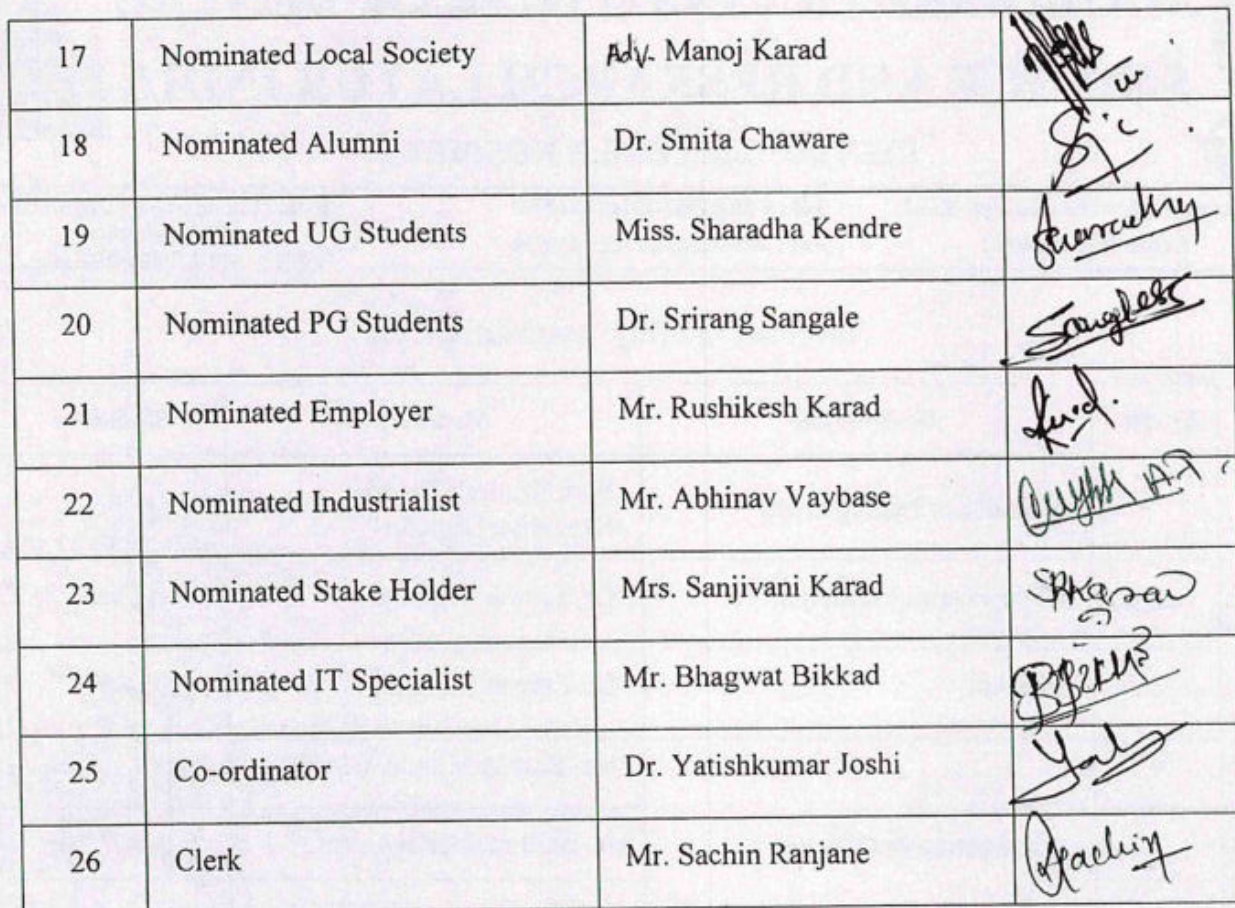 17 Nominated Local Society Adv. Manoj Karad
18 Nominated Alumni Dr. Smita Chaware
19 Nominated UG Students Miss. Sharadha Kendre
20 Nominated PG Students Dr. Srirang Sangale
21 Nominated Employer Mr. Rushikesh Karad
22 Nominated Industrialist Mr. Abhinav Vaybase
23 Nominated Stake Holder Mrs. Sanjivani Karad
24 Nominated IT Specialist Mr. Bhagwat Bikkad
25 Co-ordinator Dr. Yatishkumar Joshi
26 Clerk Mr. Sachin Ranjane Sachin